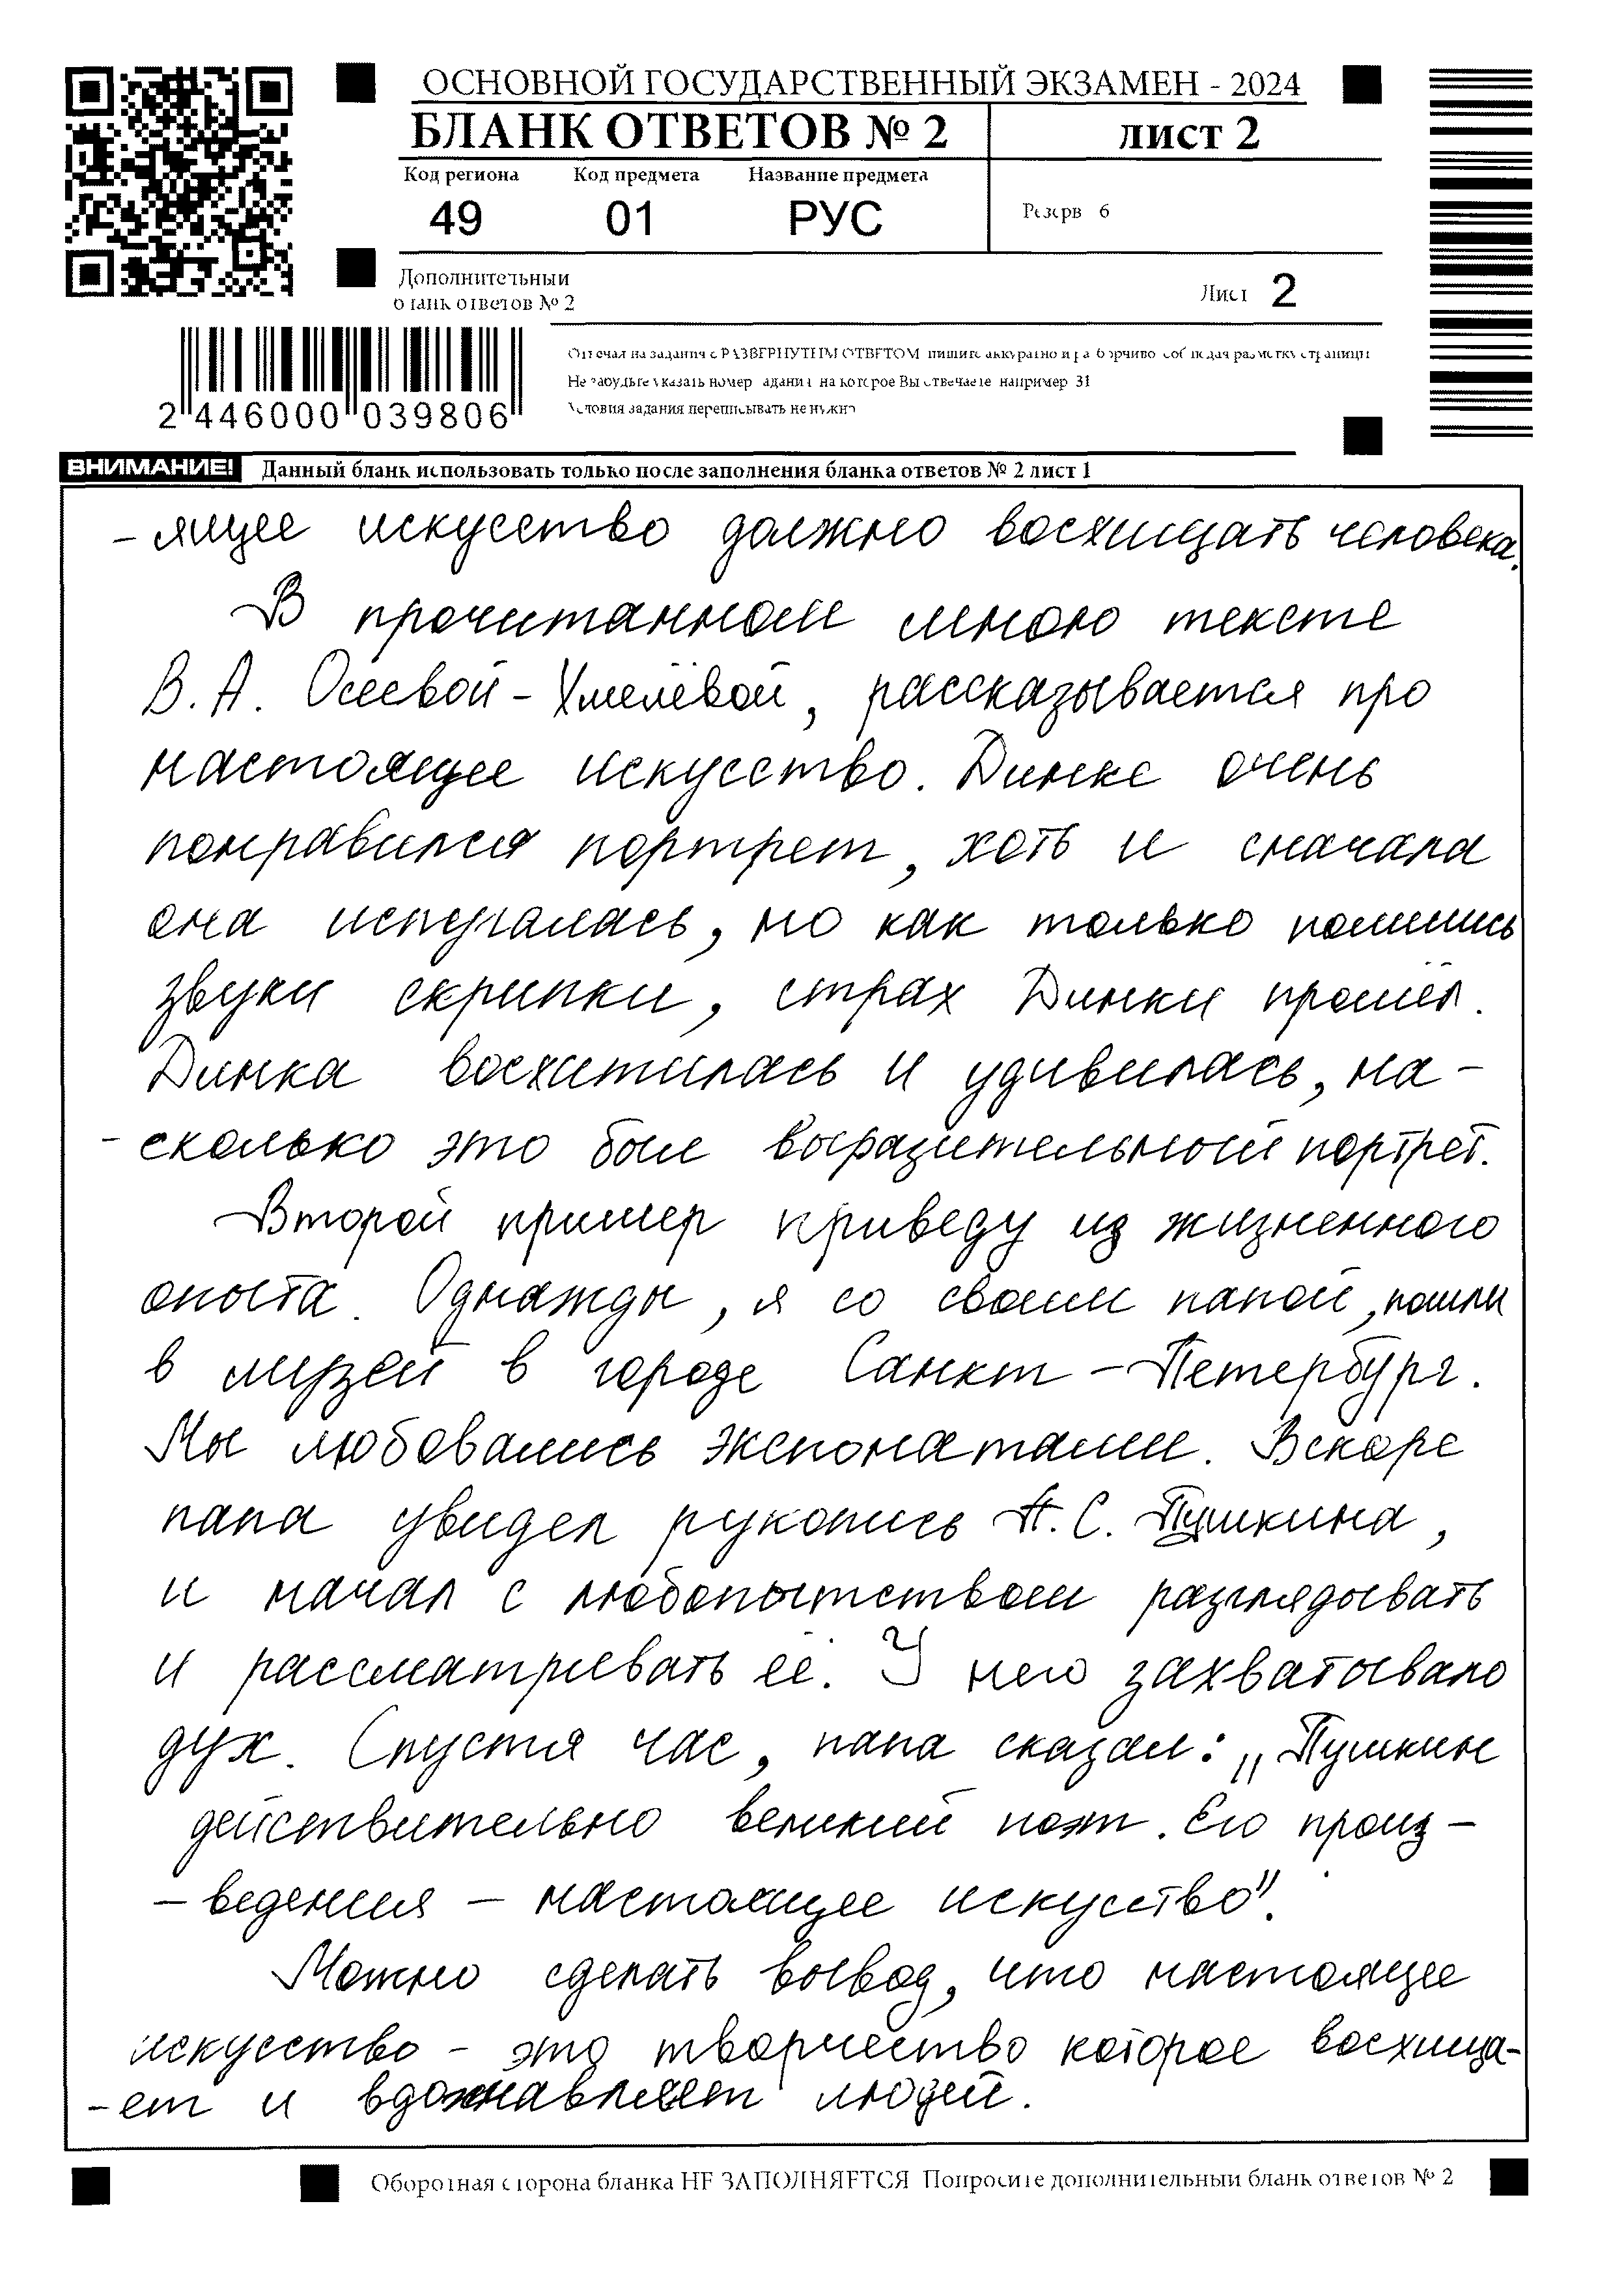 ОСНОВНОЙ ГОСУДАРСТВЕННЫЙ ЭКЗАМЕН - 2024
БЛАНК ОТВЕТОВ № 2 ЛИСТ 2
Код региона Код предмета Название предмета
49 01 РУС Резерв 6
Дополнительный
бланк ответов № 2
Лист 2
Отвечая на задания с РАЗВЕРНУТЫМ ОТВЕТОМ пишите аккуратно и разборчиво соблюдая разметку страницы
Не забудьте указать номер задания на которое Вы отвечаете например 31
Условия задания переписывать не нужно
2 446000 039806
ВНИМАНИЕ! Данный бланк использовать только после заполнения бланка ответов № 2 лист 1
-ящее искусство должно восхищать человека.
В прочитанном мною тексте
В. А. Осеевой-Хмелёвой, рассказывается про
настоящее искусство. Динке очень
понравился портрет, хоть и сначала
она испугалась, но как только полились
звуки скрипки, страх Динки прошёл.
Динка восхитилась и удивилась, на-
-сколько это был выразительный портрет.
Второй пример приведу из жизненного
опыта. Однажды, я со своим папой, пошли
в музей в городе Санкт-Петербург.
Мы любовались экспонатами. Вскоре
папа увидел рукопись А. С. Пушкина,
и начал с любопытством разглядывать
и рассматривать её. У него захватывало
дух. Спустя час, папа сказал: „Пушкин
действительно великий поэт. Его произ-
-ведения - настоящее искусство".
Можно сделать вывод, что настоящее
искусство - это творчество которое восхища-
-ет и вдохнавляет людей.
Оборотная сторона бланка НЕ ЗАПОЛНЯЕТСЯ Попросите дополнительный бланк ответов № 2